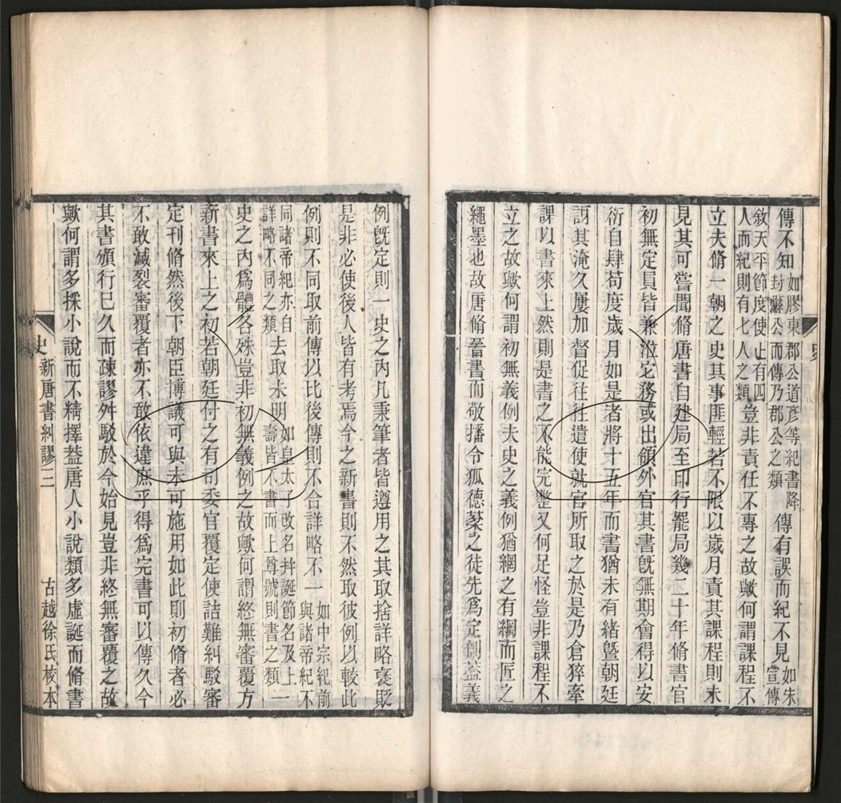 傳不知如膠東郡公道彥等紀書降封縣公而傳乃郡公之類傳有誤而紀不見如朱宣傳
敘天平節度使止有四人而紀則有七人之類豈非責任不專之故歟何謂課程不
立夫脩一朝之史其事匪輕若不限以歲月責其課程則未
見其可嘗聞脩唐書自建局至印行罷局幾二十年脩書官
初無定員皆兼涖它務或出領外官其書旣無期會得以安
衍自肆苟度歲月如是者將十五年而書猶未有緒曁朝廷
訝其淹久屢加督促往往遣使就官所取之於是乃倉猝牽
課以書來上然則是書之不能完整又何足怪豈非課程不
立之故歟何謂初無義例夫史之義例猶網之有綱而匠之
繩墨也故唐脩晉書而敬播令狐德棻之徒先爲定例葢義
例旣定則一史之內凡秉筆者皆遵用之其取捨詳略褒貶
是非必使後人皆有考焉今之新書則不然取彼例以較此
例則不同取前傳以比後傳則不合詳略不一如中宗紀前與諸帝紀不
同諸帝紀亦自詳略不同之類去取未明如皇太子改名幷誕節名及上壽皆不書而上尊號則書之類一
史之內爲體各殊豈非初無義例之故歟何謂終無審覆方
新書來上之初若朝廷付之有司委官覆定使詰難糾駁審
定刊脩然後下朝臣博議可與未可施用如此則初脩者必
不敢滅裂審覆者亦不敢依違庶乎得爲完書可以傳久今
其書頒行已久而疎謬舛駁於今始見豈非終無審覆之故
歟何謂多採小說而不精擇葢唐人小說類多虛誕而脩書
史
新唐書糾謬三
古越徐氏校本